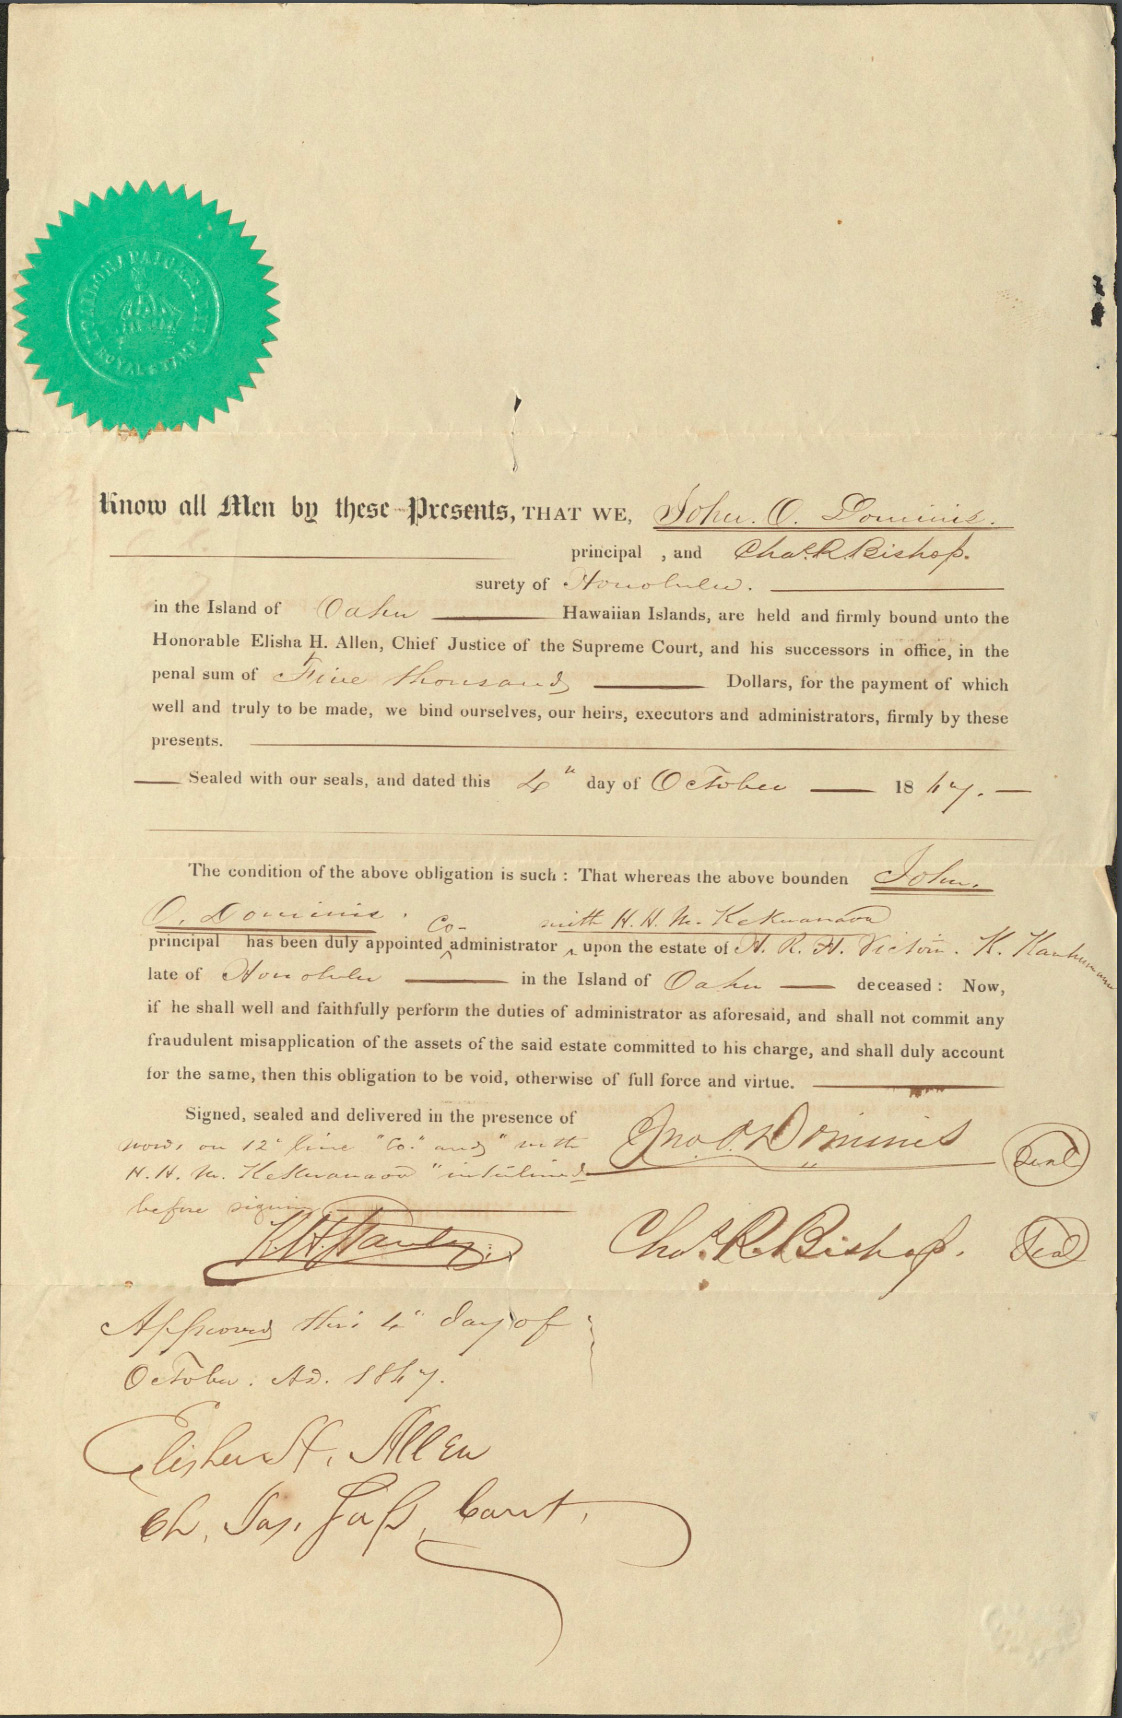 ROYAL STAMP
Know all Men by these Presents, THAT WE, John. O. Dominis.
principal , and Chas. R. Bishop.
surety of Honolulu.
in the Island of Oahu Hawaiian Islands, are held and firmly bound unto the
Honorable Elisha H. Allen, Chief Justice of the Supreme Court, and his successors in office, in the
penal sum of Five thousand Dollars, for the payment of which
well and truly to be made, we bind ourselves, our heirs, executors and administrators, firmly by these
presents.
Sealed with our seals, and dated this 4" day of October 1867.
The condition of the above obligation is such : That whereas the above bounden John.
O. Dominis. Co- with H. H. M. Kekuanaoa
principal has been duly appointed ^ administrator ^ upon the estate of H. R. H. Victoria. K. Kaahumanu
late of Honolulu in the Island of Oahu deceased : Now,
if he shall well and faithfully perform the duties of administrator as aforesaid, and shall not commit any
fraudulent misapplication of the assets of the said estate committed to his charge, and shall duly account
for the same, then this obligation to be void, otherwise of full force and virtue.
Signed, sealed and delivered in the presence of
words on 12" line "Co." and "with
H. H. M. Kekuanaoa" interlined
before signing
Jno. O. Dominis Seal
Chas. R. Bishop. Seal
Approved this 4" day of
October. AD. 1867.
Elisha H. Allen
Ch. Jus. Sup. Court.